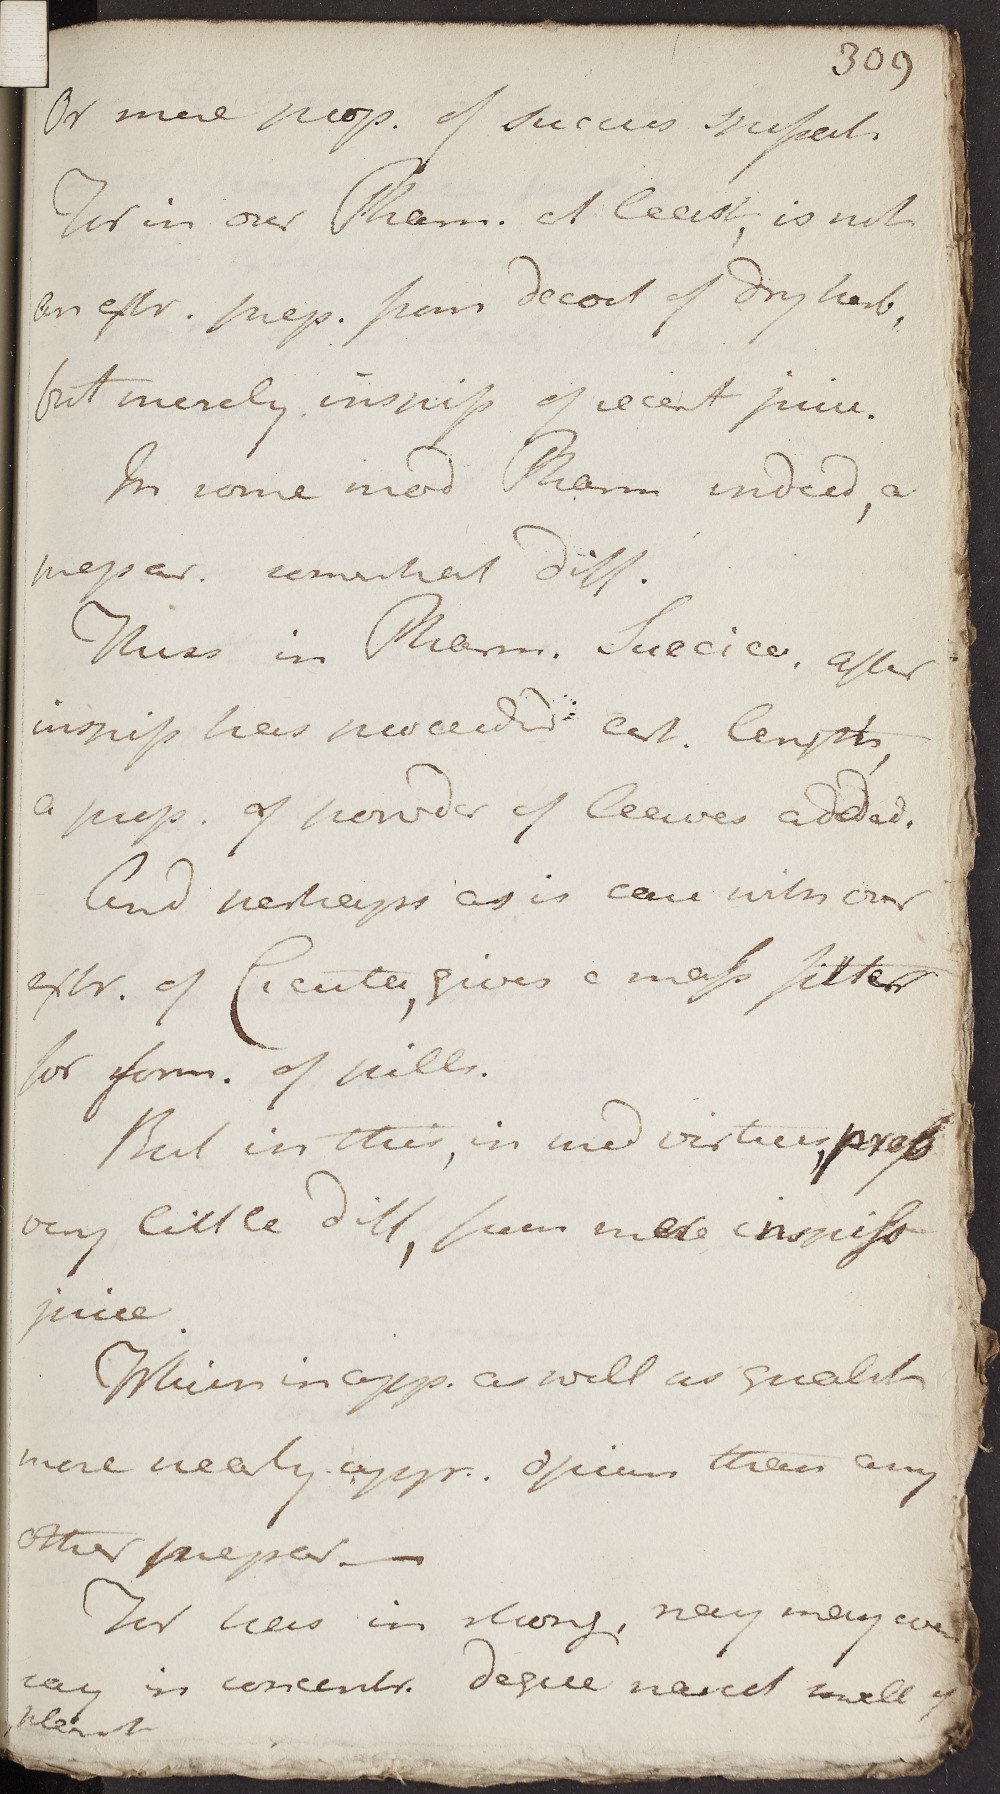 309
Or mere prep. of succus spissat
For in our Pharm. at least, is not
an extr. prep. from decoct of dry herb,
but merely inspiss of recent juice.
In some mod Pharm indeed, a
prepar. somewhat diff.
Thus in Pharm. Suecica, after
inspiss has proceeded cert. length,
a prop. of powder of leaves added.
And perhaps as is case with our
extr. of Cicuta, gives a mass fitter
for form. of pills.
But in this, in med virtues, prob
very little diff, from mere inspiss
juice
Which in app. as well as qualit
more nearly appr. opium than any
other prepar —
For has in strong, nay may even
say in concentr. degree naus smell of
plant